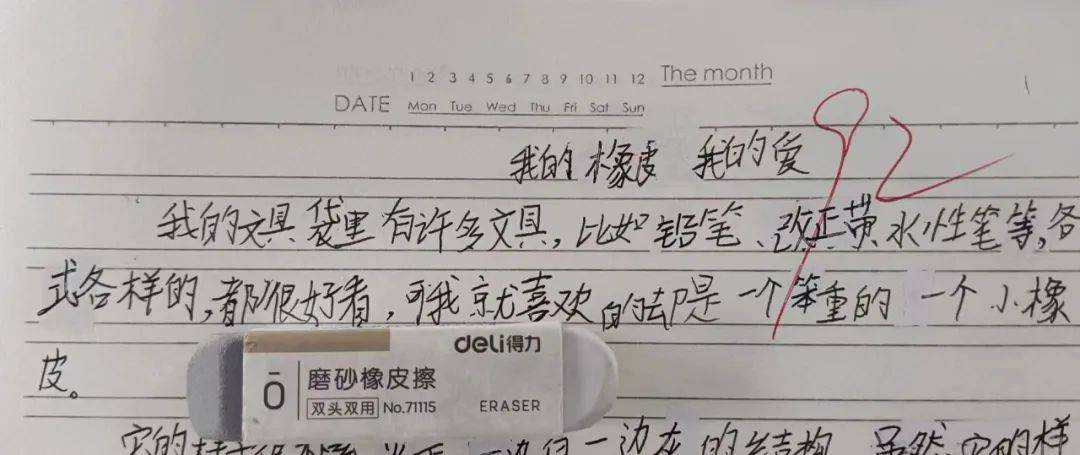 1 2 3 4 5 6 7 8 9 10 11 12 The month
DATE Mon Tue Wed Thu Fri Sat Sun
92
我的橡皮 我的爱
我的文具袋里有许多文具,比如铅笔、改正黄水性笔等,各
式各样的,都很好看,可我京尤喜欢的却是一个笨重的 一个小橡
皮。
deli得力
ō 磨砂橡皮擦
双头双用 No.71115 ERASER
它的 一边在的结构 虽然它的样